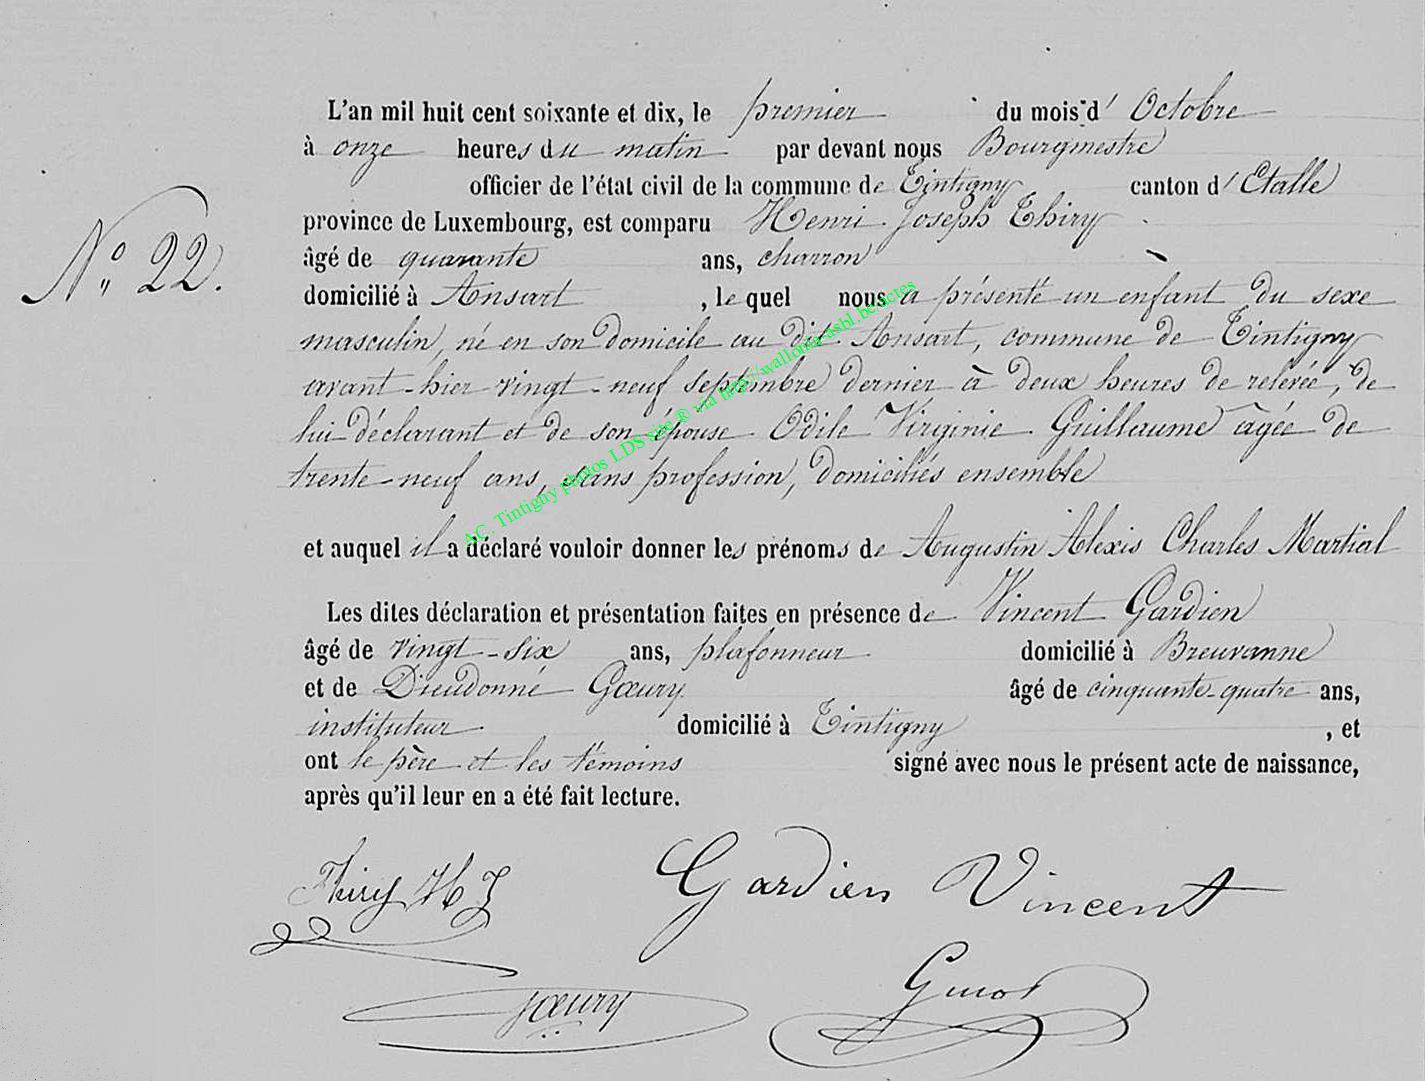 L'an mil huit cent soixante et dix, le premier du mois d' Octobre
à onze heures du matin par devant nous Bourgmestre
officier de l'état civil de la commune de Tintigny canton d' Etalle
province de Luxembourg, est comparu Henri Joseph Thiry
N° 22.
âgé de quarante ans, charron
domicilié à Ansart, lequel nous a présenté un enfant du sexe
masculin, né en son domicile au dit Ansart, commune de Tintigny
avant-hier vingt-neuf septembre dernier à deux heures de relevée, de
lui déclarant et de son épouse Odile Virginie Guillaume âgée de
trente-neuf ans, sans profession, domiciliés ensemble
et auquel il a déclaré vouloir donner les prénoms de Augustin Alexis Charles Martial
Les dites déclaration et présentation faites en présence de Vincent Gardien
âgé de vingt-six ans, plafonneur domicilié à Breuvanne
et de Dieudonné Gœury âgé de cinquante-quatre ans,
instituteur domicilié à Tintigny, et
ont le père et les témoins signé avec nous le présent acte de naissance,
après qu'il leur en a été fait lecture.
Thiry H J Gardien Vincent
Gœury
A.C. Tintigny photos LDS site ® via http://wallonia-asbl.be/actes